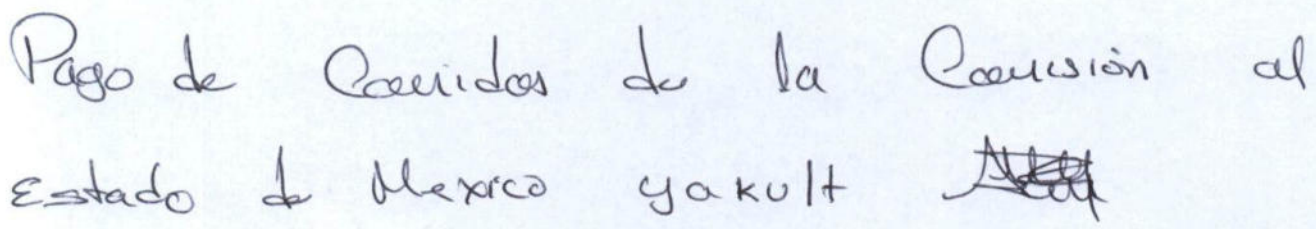 Pago de Comidas de la Comisión al
Estado de Mexico yakult